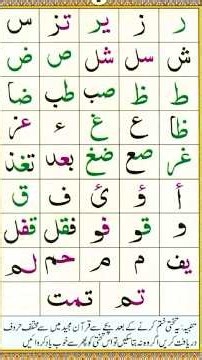 ر ز یر تز س
ش سل شل ص ض
ط ظ صب طب ضا
ظا ع غ ء عز
غر صع ضغ بعد تغذ
أ ؤ ئ ف ق
و قو فو فقل قفل
یف م م حم لم
تم تمت
تنبیہ: یہ تختی ختم کرنے کے بعد بچے سے قرآن مجید میں سے مختلف حروف
دریافت کریں اگر وہ نہ بتا سکیں تو اس تختی کو پھر سے خوب یاد کروائیں